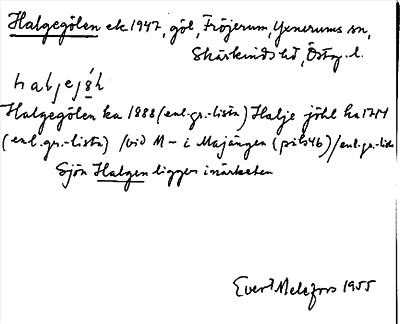 Halgegölen ek 1947, göl, Fröjerum, Yxnerums sn,
Skärkinds hd, Östg. l.
haljejö́ĺ
Halgegölen ka 1888 (enl. gr.-lista) Halje jöhl ka 1714
(enl. gr.-lista) /vid M– i Majängen (      )/enl. gr.-lista
Sjön Halgen ligger i närheten
Evert Melefors 1955